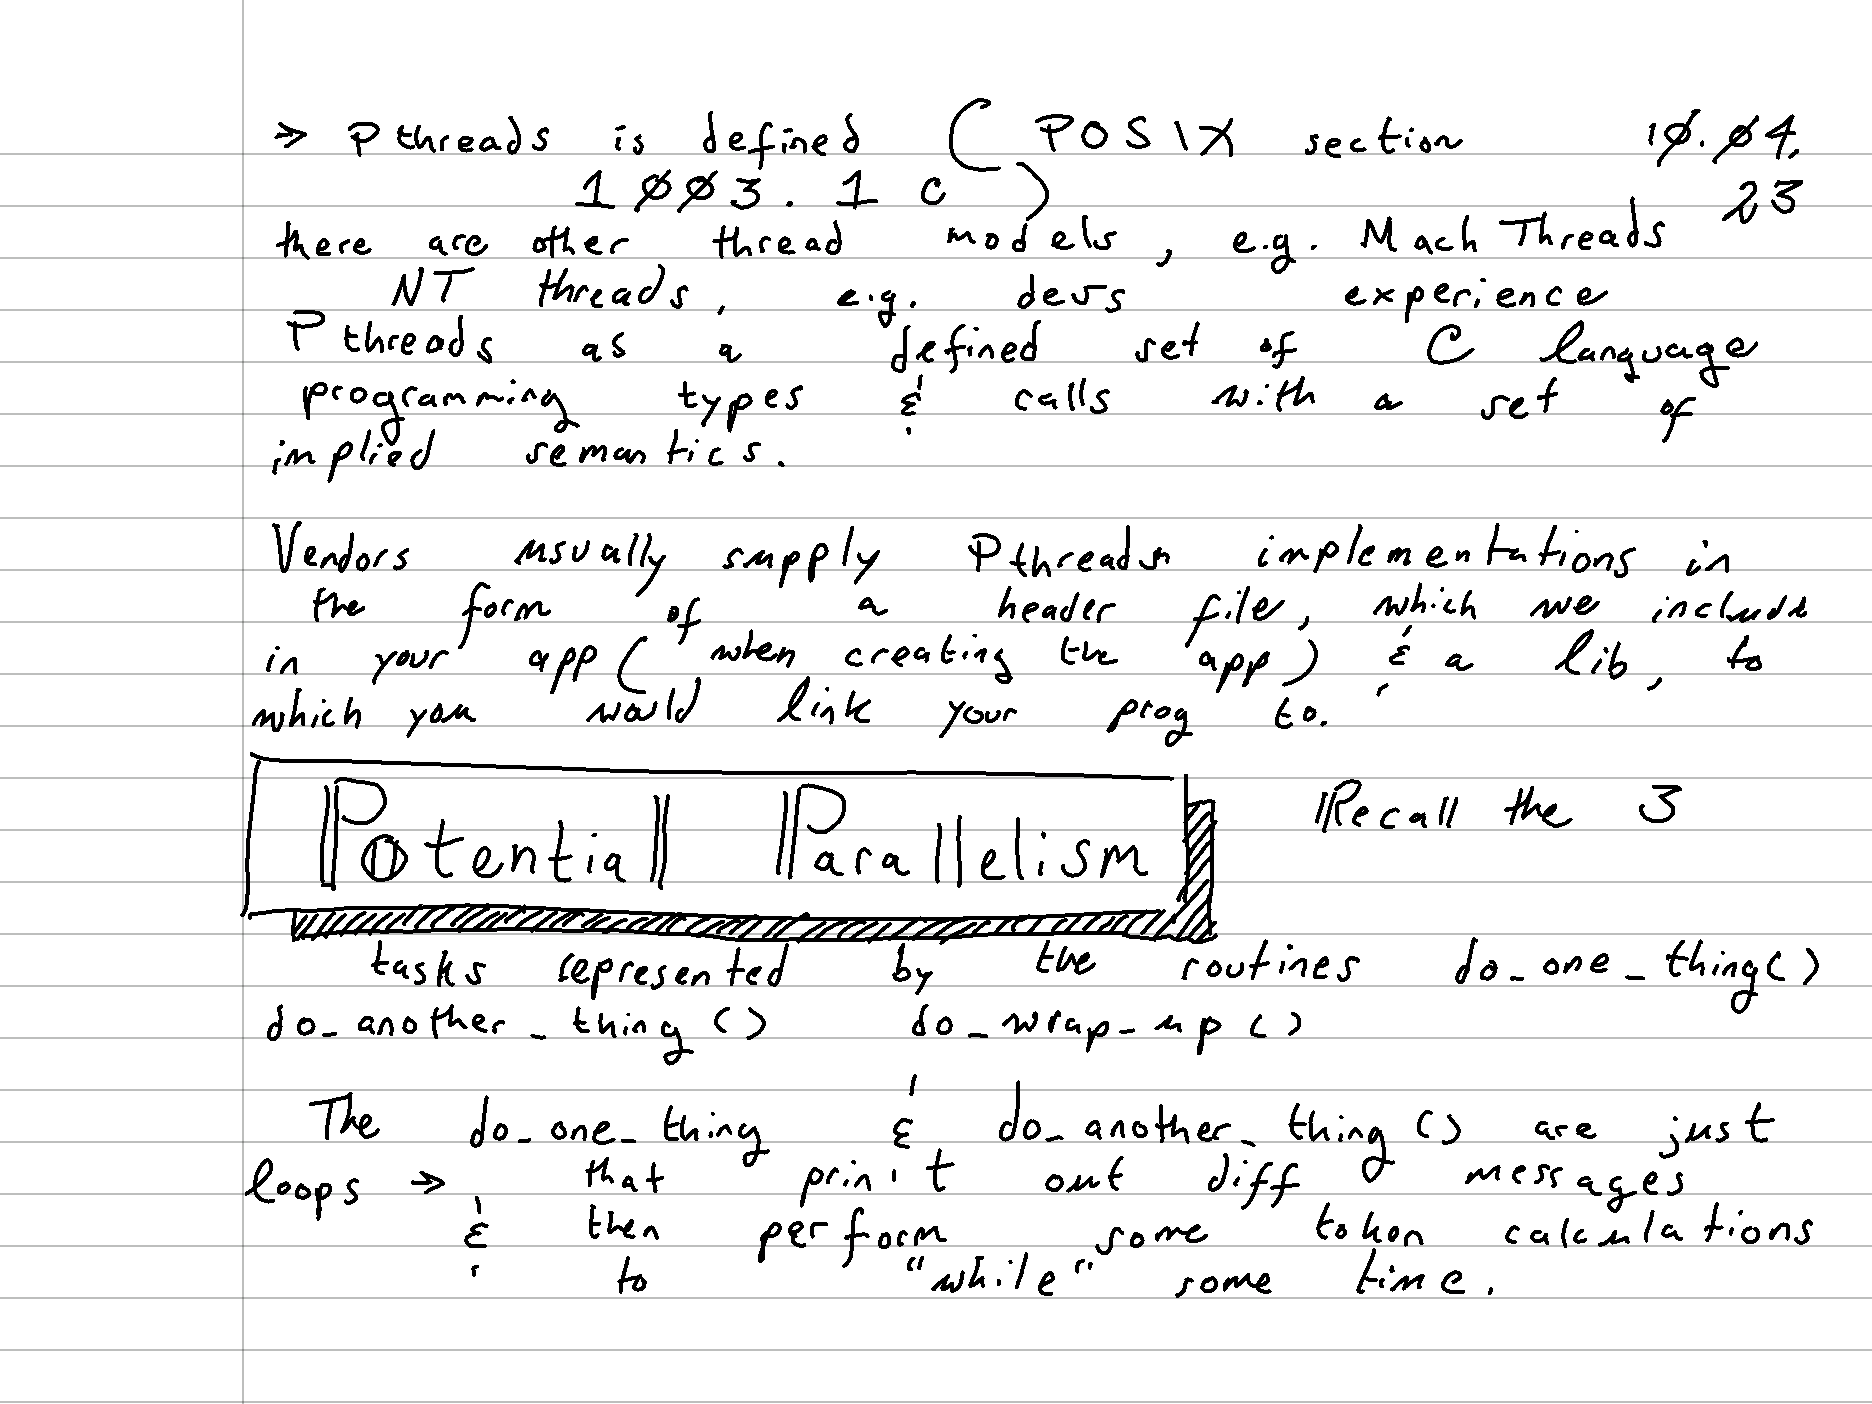 → Pthreads is defined ( POSIX section 10.04.
1003.1c ) 23
there are other thread models, e.g. Mach Threads
NT threads, e.g. devs experience
Pthreads as a defined set of C language
programming types & calls with a set of
implied semantics.
Vendors usually supply Pthreads implementations in
the form of a header file, which we include
in your app ( when creating the app) & a lib, to
which you would link your prog to.
Potential Parallelism Recall the 3
tasks represented by the routines do_one_thing()
do_another_thing() do_wrap_up()
The do_one_thing & do_another_thing() are just
loops → that print out diff messages
& then perform some token calculations
to "while" some time.